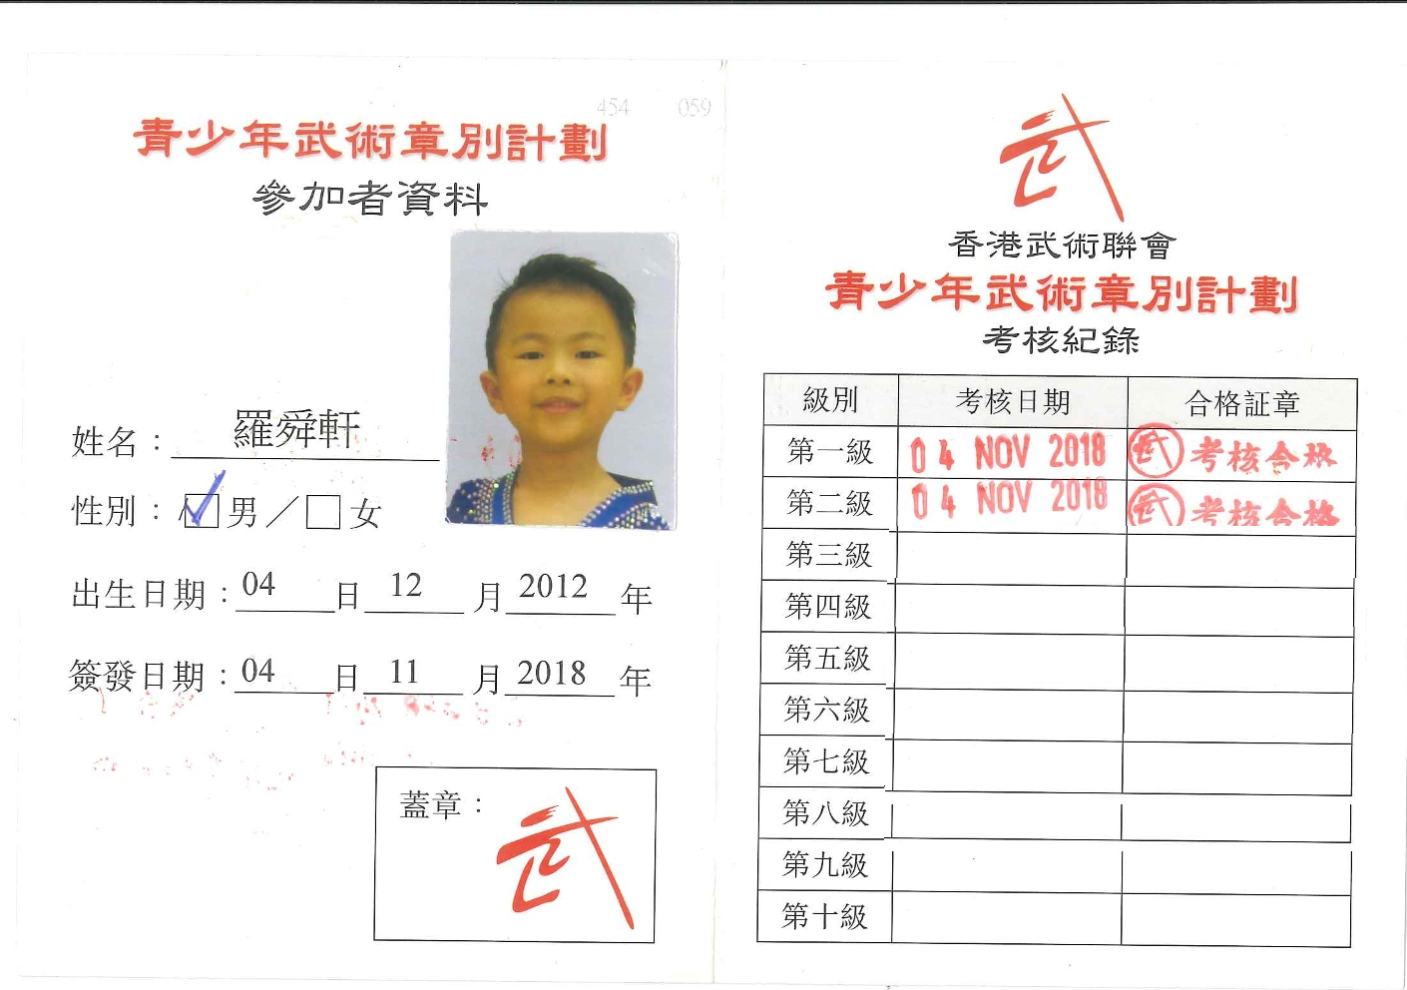 454 059
青少年武術章別計劃
參加者資料
姓名：羅舜軒
性別：男／女
出生日期：04日12月2012年
簽發日期：04日11月2018年
蓋章：
武
武
香港武術聯會
青少年武術章別計劃
考核紀錄
級別 考核日期 合格証章
第一級 04 NOV 2018 武 考核合格
第二級 04 NOV 2018 武 考核合格
第三級
第四級
第五級
第六級
第七級
第八級
第九級
第十級